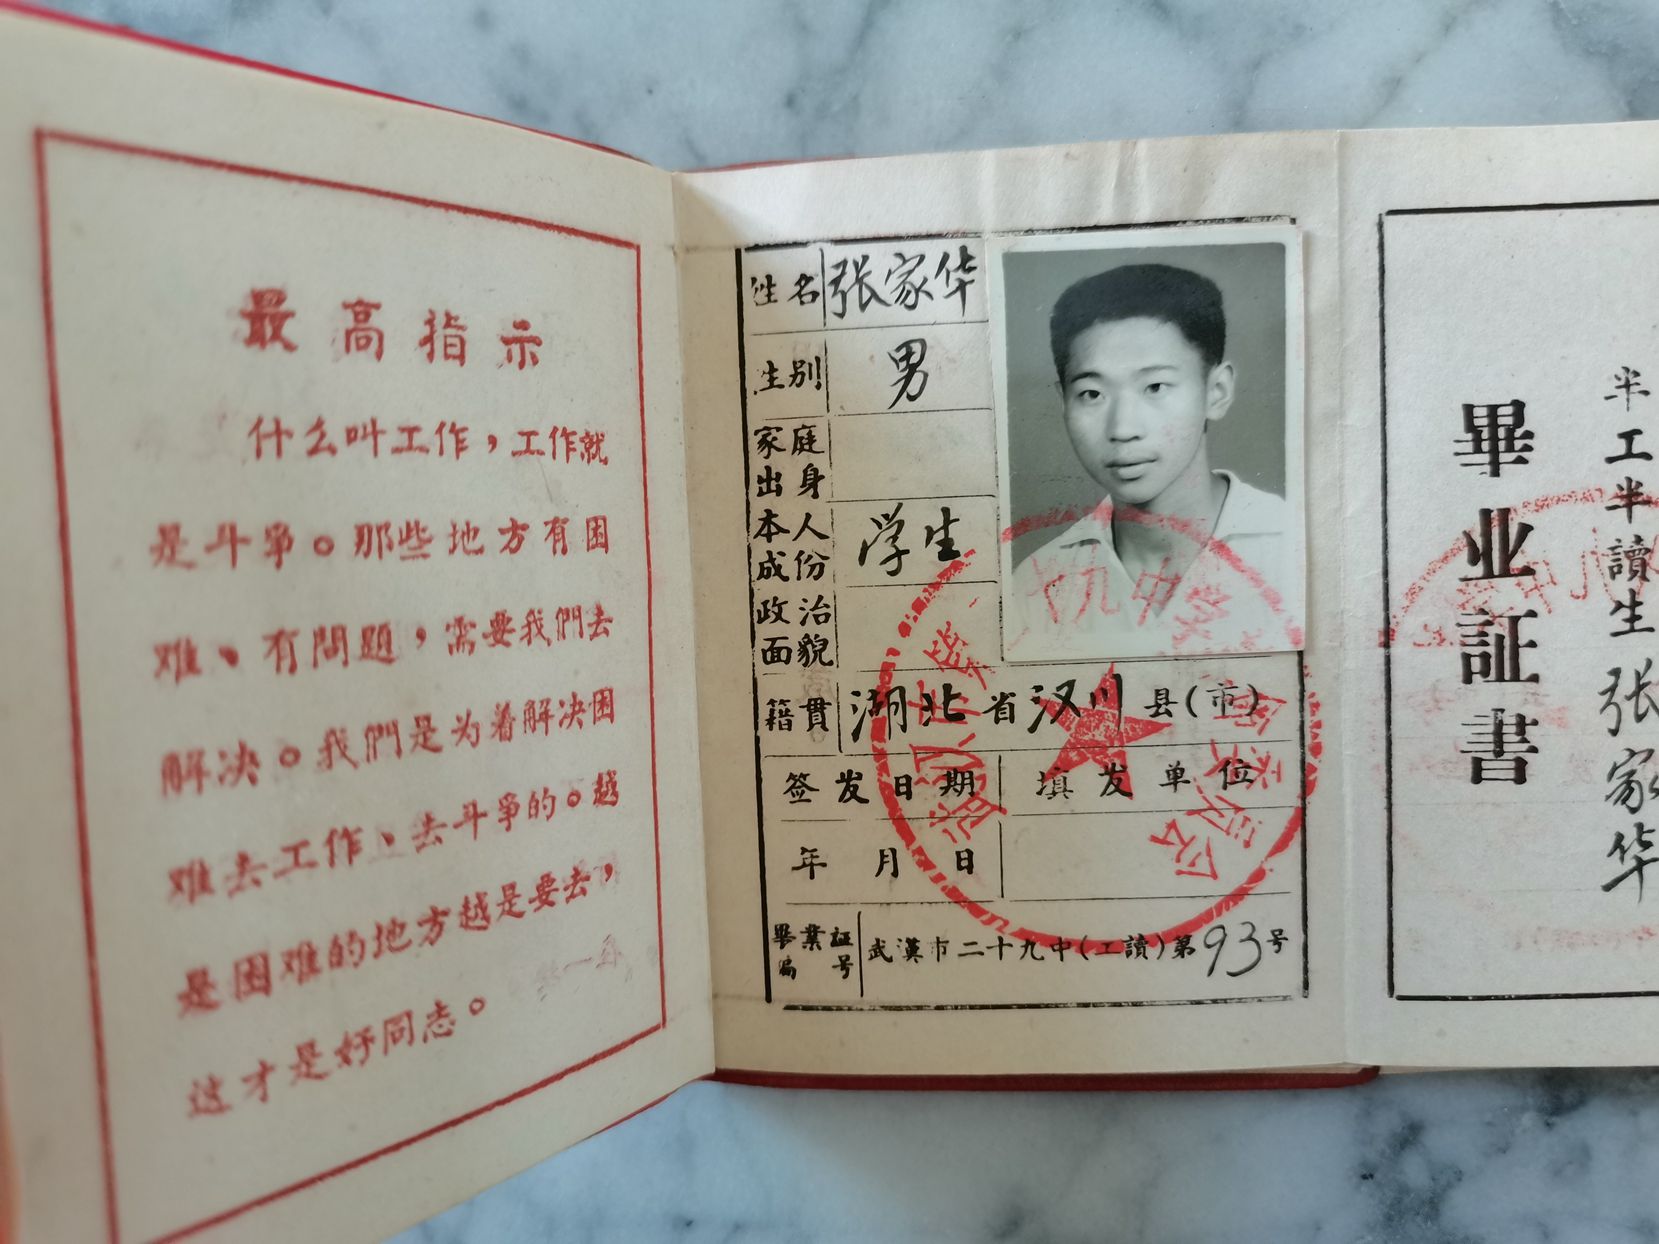 最高指示
什么叫工作，工作就
是斗爭。那些地方有困
难、有問題，需要我們去
解决。我們是为着解决困
难去工作、去斗爭的。越
是困难的地方越是要去，
这才是好同志。
姓名 张家华
生别 男
家庭出身
本人成份 学生
政治面貌
籍貫 湖北省汉川县(市)
签发日期 填发单位
年 月 日
畢業証 武漢市二十九中(工讀)第93号
号
畢业証書
半工半讀生张家华